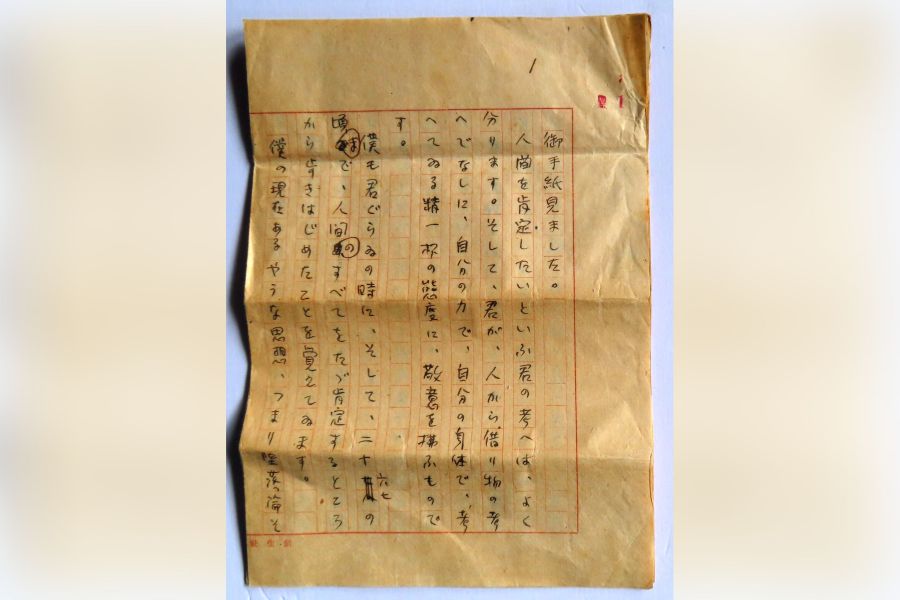 1
御手紙見ました。
人間を肯定したいといふ君の考へは、よく
分ります。そして、君が、人から借り物の考
へでなしに、自分の力で、自分の身体で、考
へてゐる精一杯の態度に、敬意を拂ふもので
す。
僕も君ぐらゐの時に、そして、二十六七の
頃まで、人間のすべてをたゞ肯定するところ
から歩きはじめたことを覚えてゐます。
僕の現在あるやうな思想、つまり堕落論そ